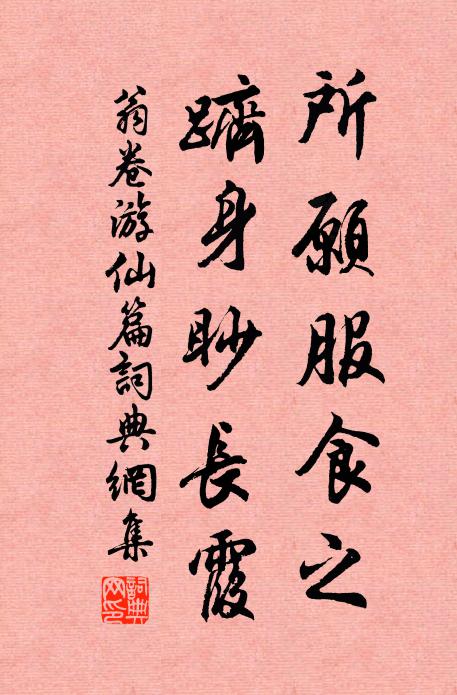 所願服食之
躋身眇長霞
翁卷游仙篇詞典網集
詞典网印